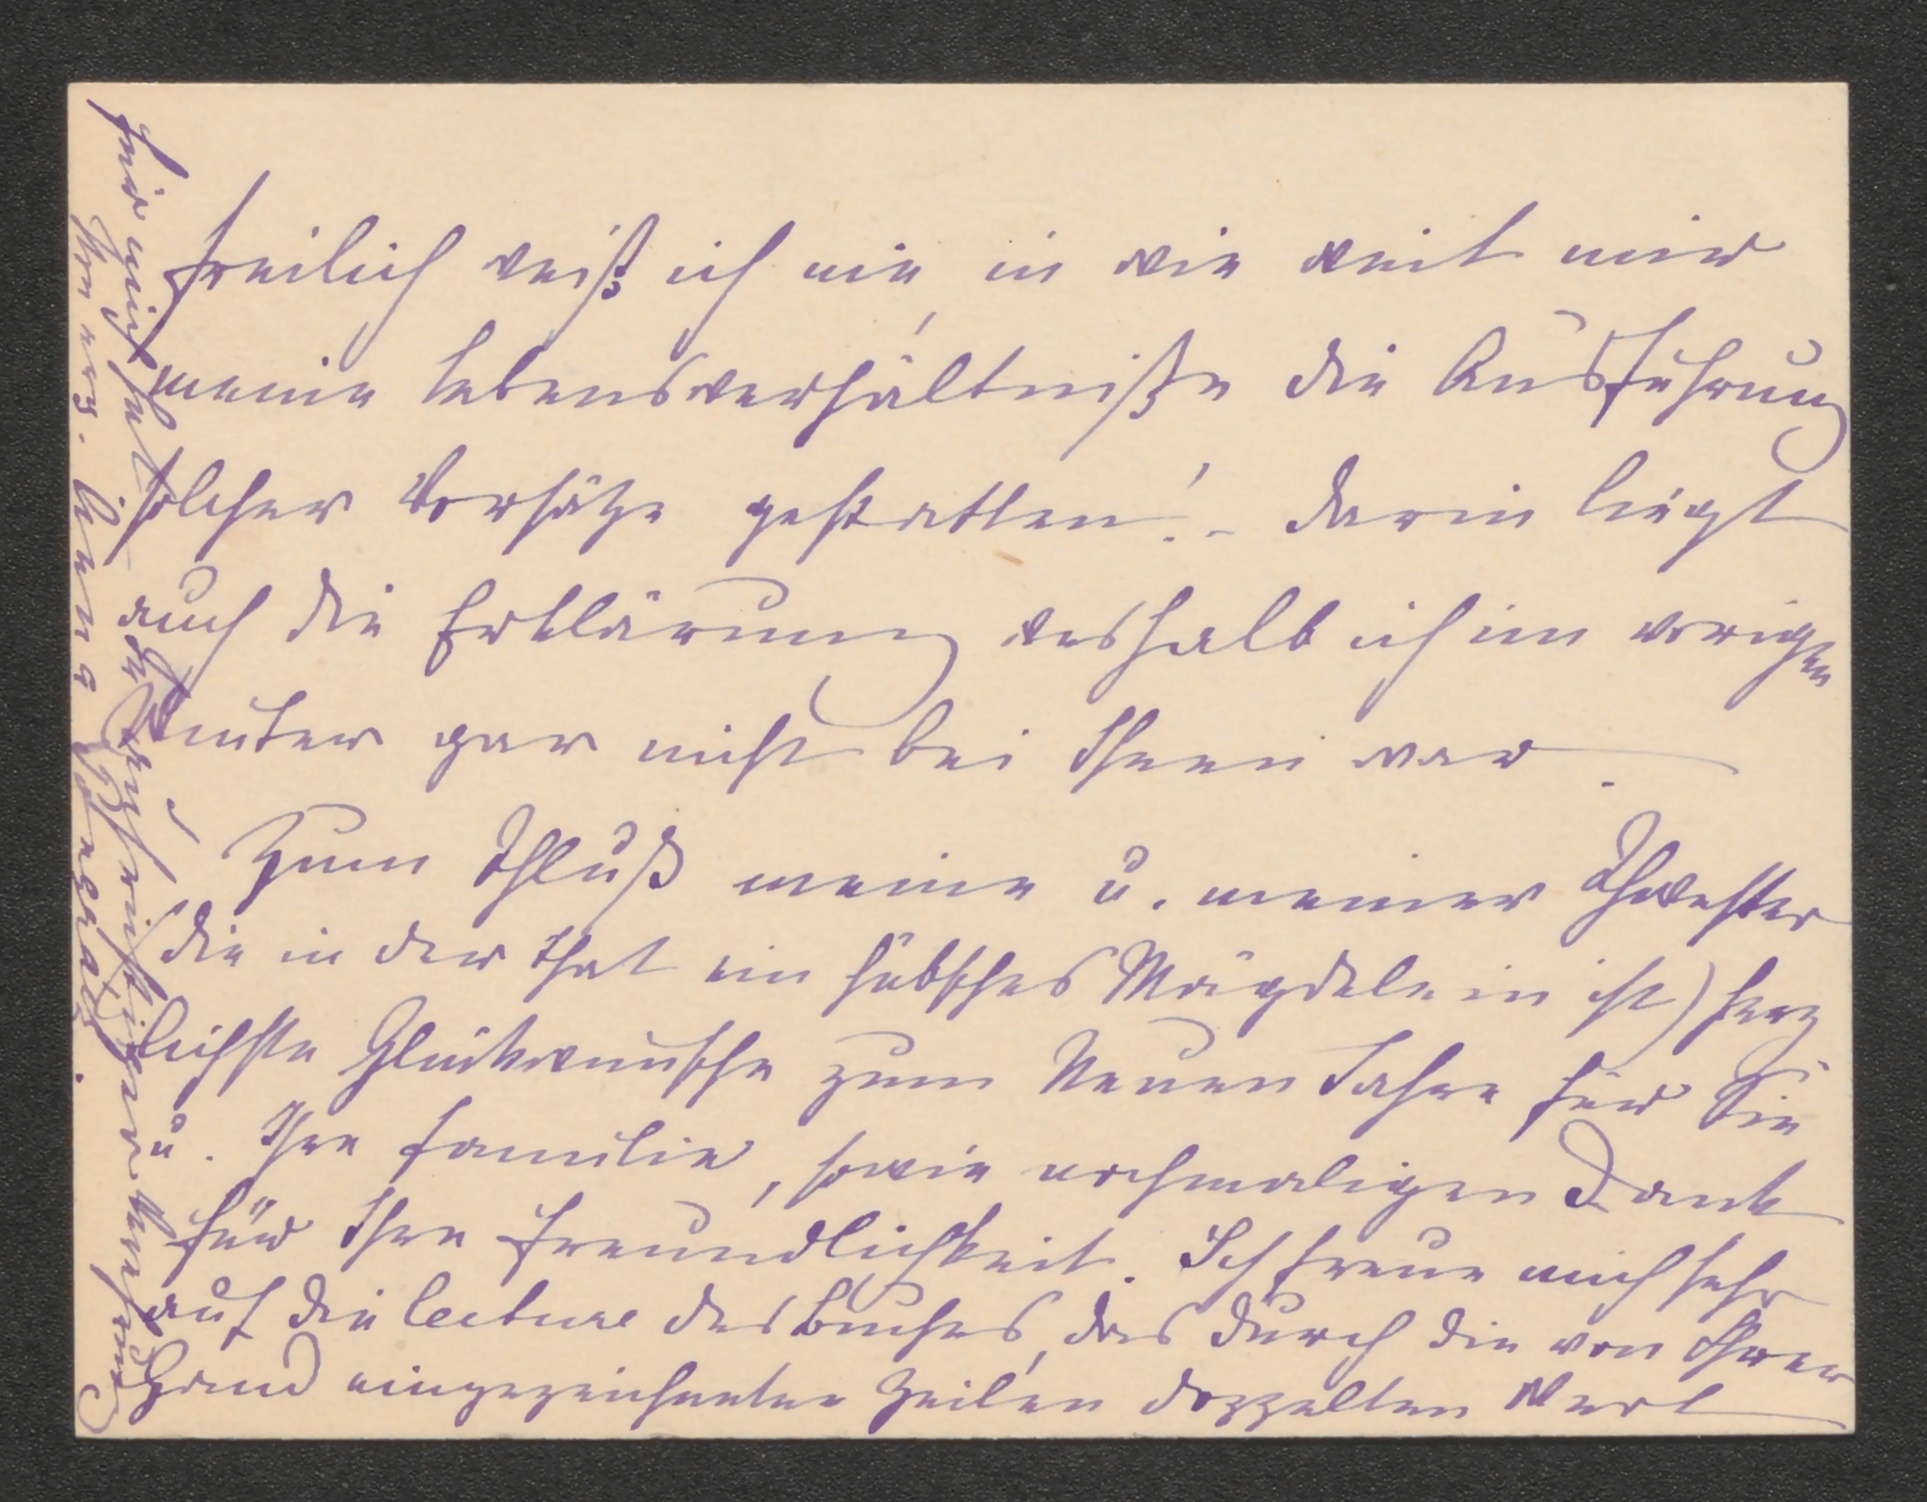 freilich weiß ich nie, in wie weit mir
meine Lebensverhältniße die Ausführung
solcher Vorsätze gestatten! - Darin liegt
auch die Erklärung weshalb ich im vorigen
Winter gar nicht bei Ihnen war.
Zum Schluß meine u. meiner Schwester
(die in der That ein hübsches Mägdelein ist) herz
lichste Glückwünsche zum Neuen Jahre für Sie
u. Ihre Familie, sowie nochmaligen Dank
für Ihre Freundlichkeit. Ich freue mich sehr
auf die Lecture des Buches, das durch die von Ihrer
Hand eingezeichneten Zeilen doppelten Wert
für mich hat.
Ihre erg.